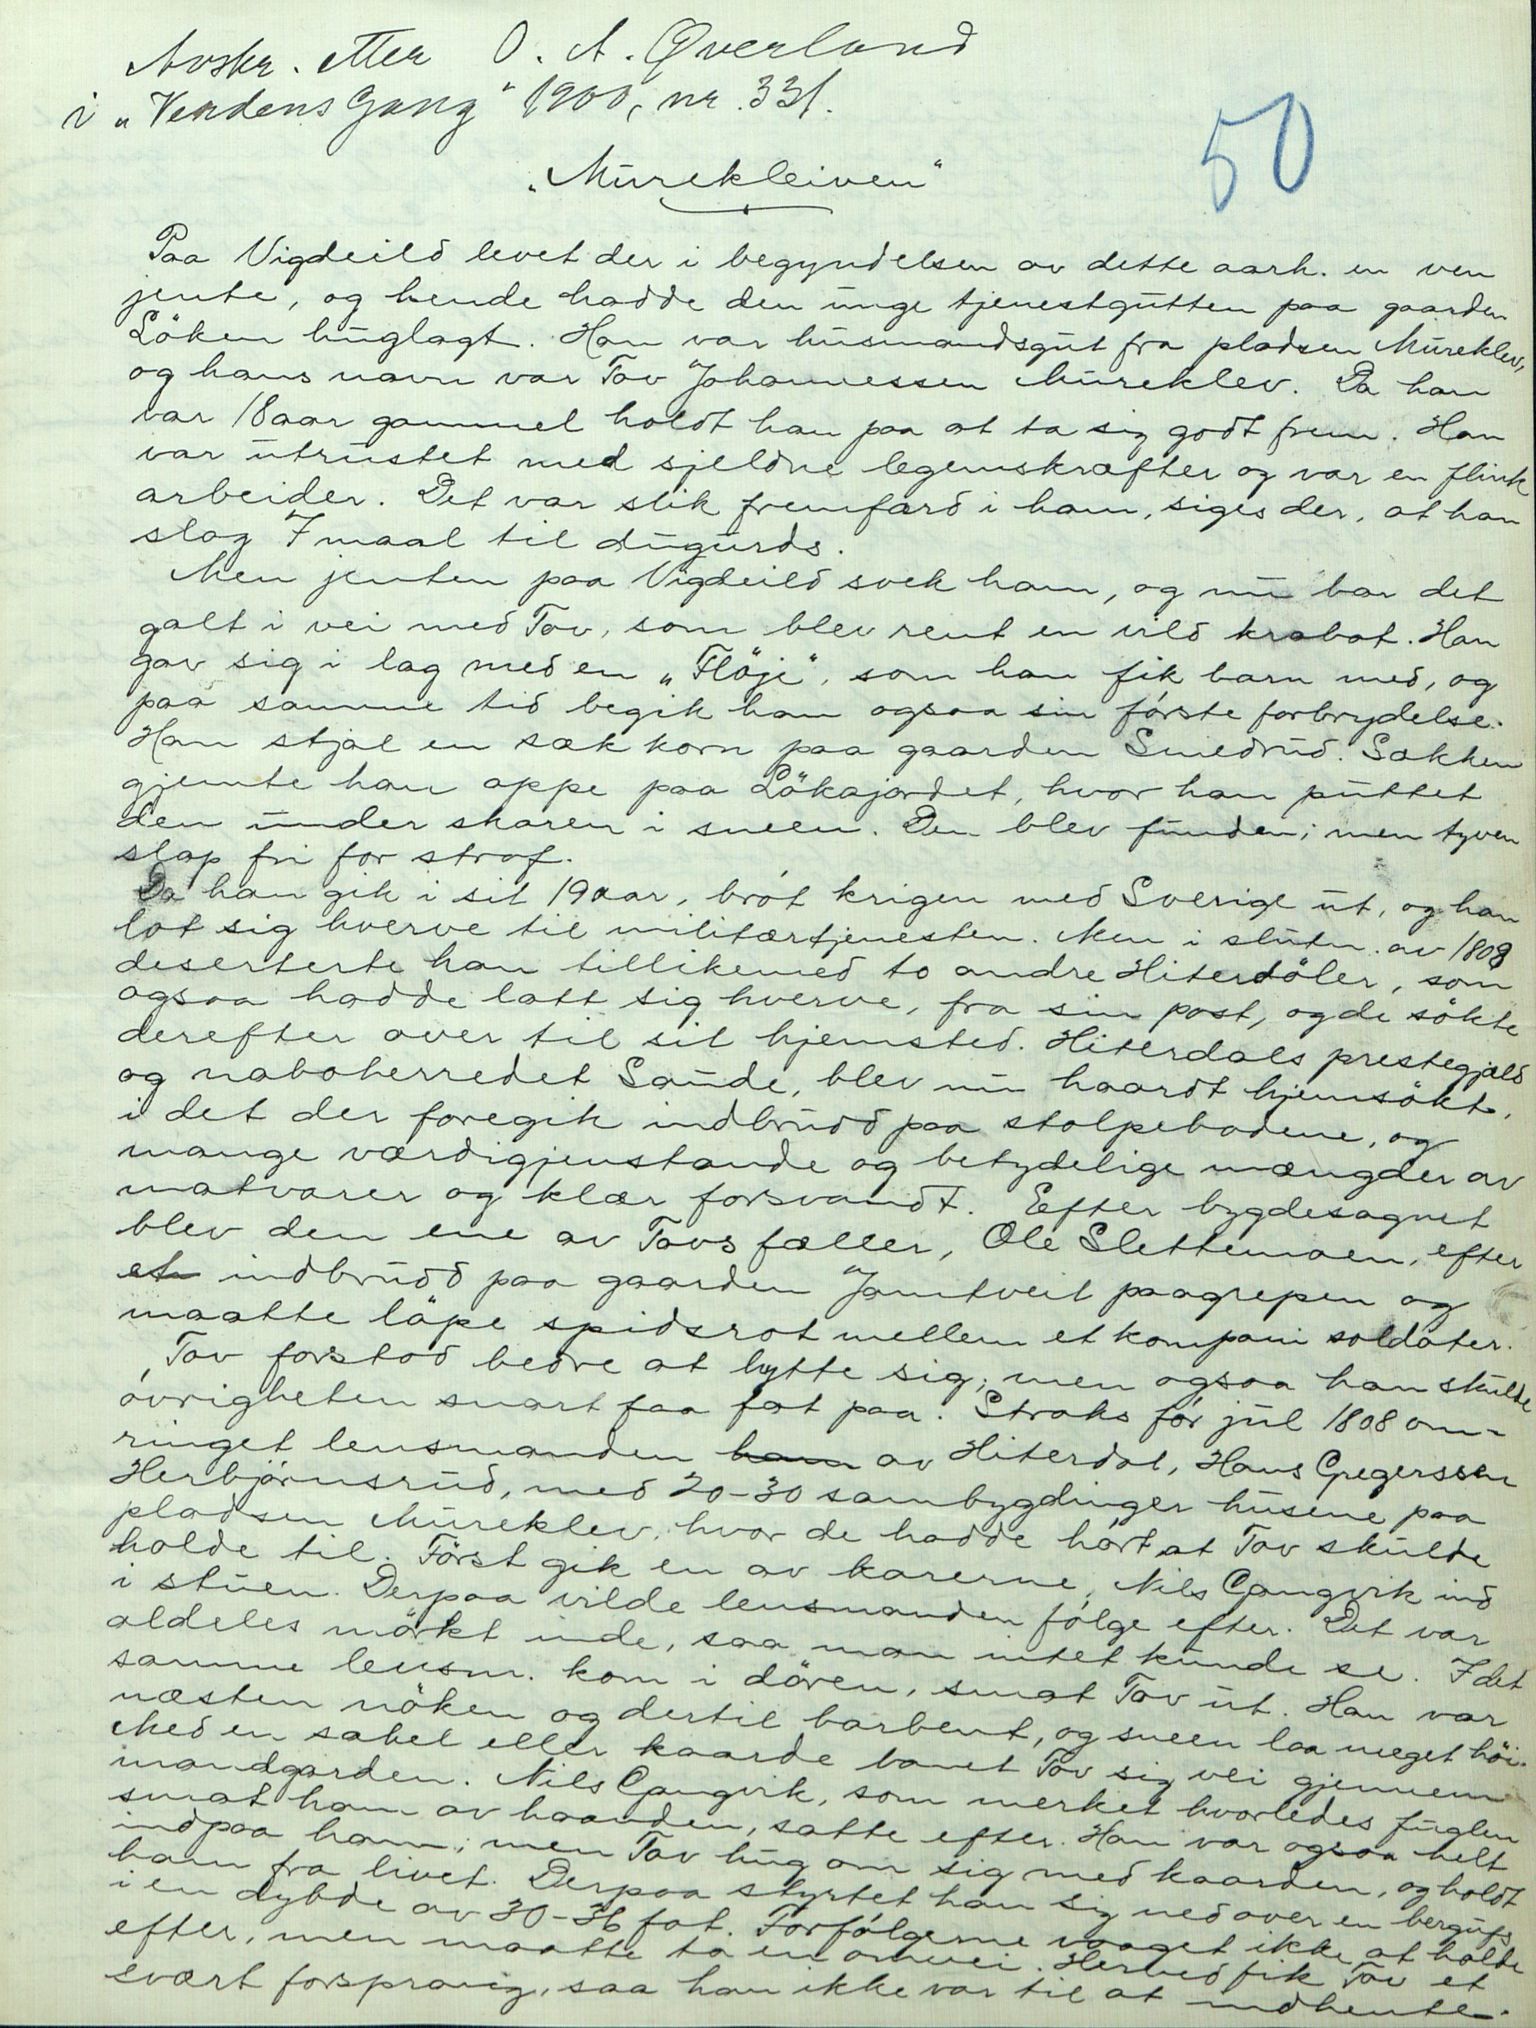 Avskr. etter O. A. Øverland
i „Verdens Gang" 1900, nr. 331.
50
„Murekleiven"
Paa Vigdeild levet der i begyndelsen av dette aarh. en ven
jente, og hende hadde den unge tjenestgutten paa gaarden
Löken huglagt. Han var husmandsgut fra pladsen Mureklev,
og hans navn var Tov Johannessen Mureklev. Da han
var 18 aar gammel holdt han paa at ta sig godt frem. Han
var utrustet med sjeldne legemskræfter og var en flink
arbeider. Det var slik fremfærd i ham, siges der, at han
slog 7 maal til dugurds.
Men jenten paa Vigdeild svek ham, og nu bar det
galt i vei med Tov, som blev rent en vild krabat. Han
gav sig i lag med en „Flöje", som han fik barn med, og
paa samme tid begik han ogsaa sin første forbrydelse.
Han stjal en sæk korn paa gaarden Smedrud. Sækken
gjemte han oppe paa Lökajordet, hvor han puttet
den under skaren i sneen. Den blev funden; men tyven
slap fri for straf.
Da han gik i sit 19 aar, brøt krigen med Sverige ut, og han
lot sig hverve til militærtjenesten. Men i slutn. av 1808
deserterte han tillikemed to andre Hiterdöler, som
ogsaa hadde latt sig hverve, fra sin post, og de sökte
derefter over til sit hjemsted. Hiterdals prestegjæld
og naboherredet Saude, blev nu haardt hjemsökt,
i det der foregik indbrudd paa stolpebodene, og
mange værdigjenstande og betydelige mængder av
matvarer og klær forsvandt. Efter bygdesagnet
blev den ene av Tovs fæller, Ole Slettemoen, efter
et indbrudd paa gaarden Jamtveit paagrepen og
maatte löpe spidsrot mellem et kompani soldater.
Tov forstod bedre at bytte sig; men ogsaa han skulde
øvrigheten snart faa fat paa. Straks før jul 1808 om-
ringet lensmanden ham av Hiterdal, Hans Gregerssen
Herbjørnsrud, med 20-30 sambygdinger husene paa
pladsen Mureklev, hvor de hadde hørt at Tov skulde
holde til. Först gik en av karerne, Nils Gangvik ind
i stuen. Derpaa vilde lensmanden følge efter. Det var
aldeles mörkt inde, saa man intet kunde se. I det
samme lensm. kom i dören, smat Tov ut. Han var
næsten nöken og dertil barbent, og sneen laa meget höi.
Med en sabel eller kaarde banet Tov sig vei gjennem
mandgarden. Nils Gangvik, som merket hvorledes fuglen
smat ham av haanden, satte efter. Han var ogsaa helt
indpaa ham; men Tov hug om sig med kaarden, og holdt
ham fra livet. Derpaa styrtet han sig ned over en bergufs
i en dybde av 30-36 fot. Forfølgerne vaaget ikke at holde
efter, men maatte ta en omvei. Herved fik Tov et
svært forsprang, saa han ikke var til at indhente.